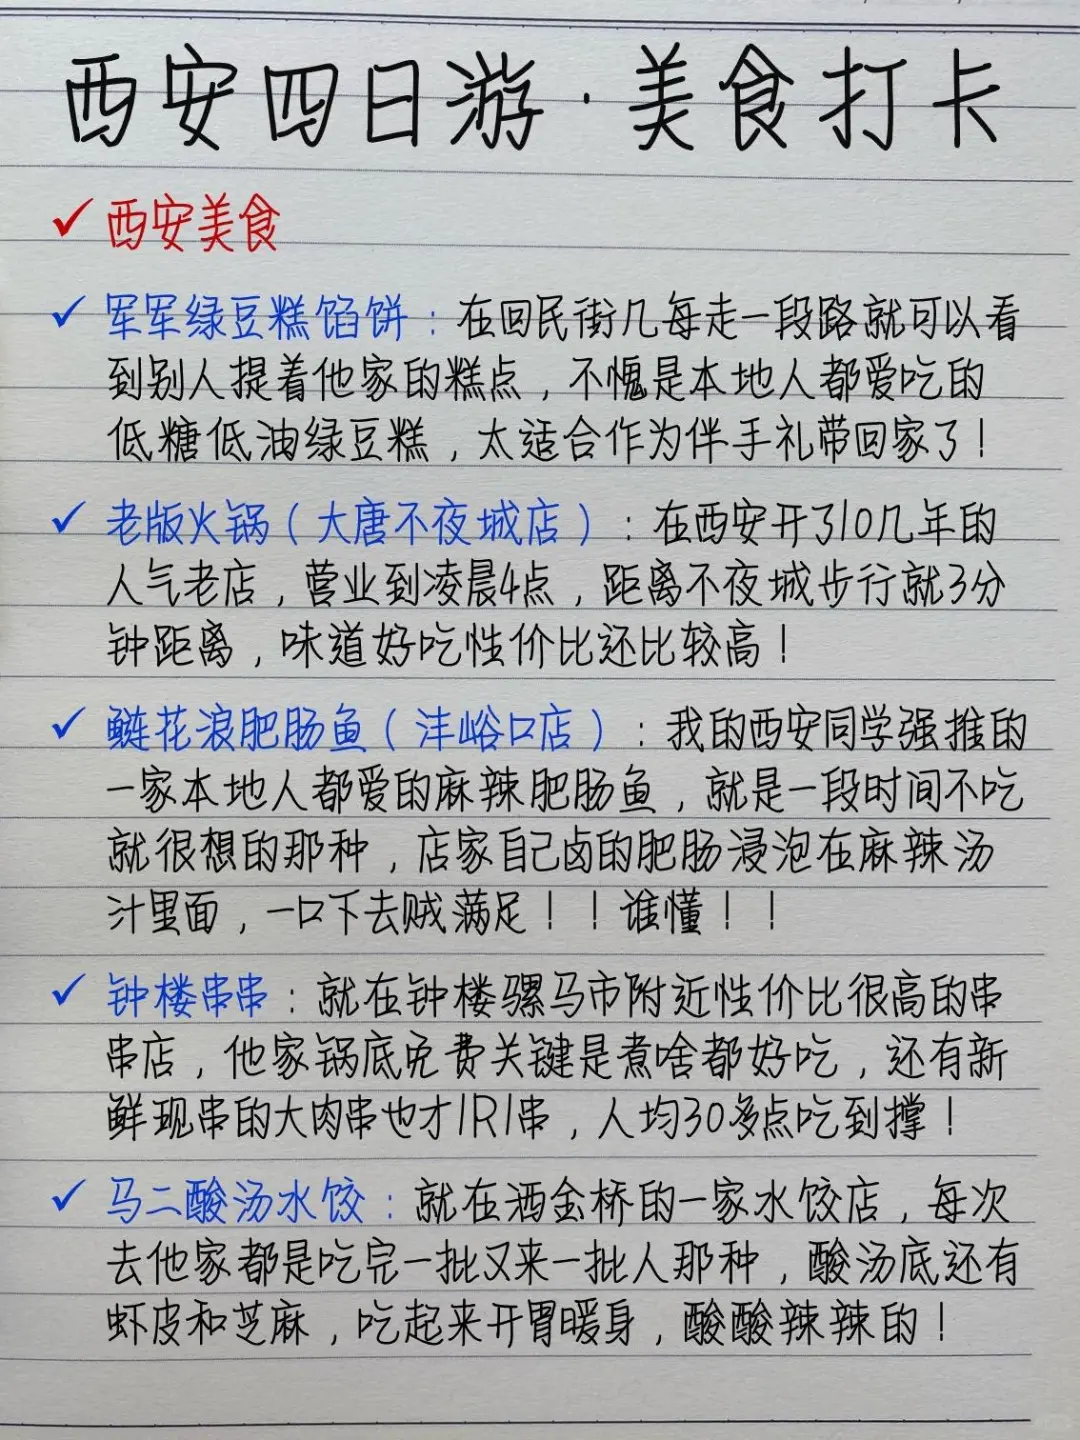 西安四日游·美食打卡
✓西安美食
✓军军绿豆糕馅饼：在回民街几每走一段路就可以看
到别人提着他家的糕点，不愧是本地人都爱吃的
低糖低油绿豆糕，太适合作为伴手礼带回家了！
✓老版火锅（大唐不夜城店）：在西安开了10几年的
人气老店，营业到凌晨4点，距离不夜城步行就3分
钟距离，味道好吃性价比还比较高！
✓鲢花浪肥肠鱼（沣峪口店）：我的西安同学强推的
一家本地人都爱的麻辣肥肠鱼，就是一段时间不吃
就很想的那种，店家自己卤的肥肠浸泡在麻辣汤
汁里面，一口下去贼满足！！谁懂！！
✓钟楼串串：就在钟楼骡马市附近性价比很高的串
串店，他家锅底免费关键是煮啥都好吃，还有新
鲜现串的大肉串也才1R1串，人均30多点吃到撑！
✓马二酸汤水饺：就在洒金桥的一家水饺店，每次
去他家都是吃完一批又来一批人那种，酸汤底还有
虾皮和芝麻，吃起来开胃暖身，酸酸辣辣的！